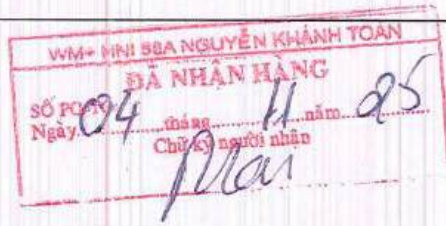 WM+ HNI 88A NGUYỄN KHÁNH TOÀN
ĐÃ NHẬN HÀNG
SỐ PO
Ngày 04 tháng 11 năm 25
Chữ ký người nhận
Mai